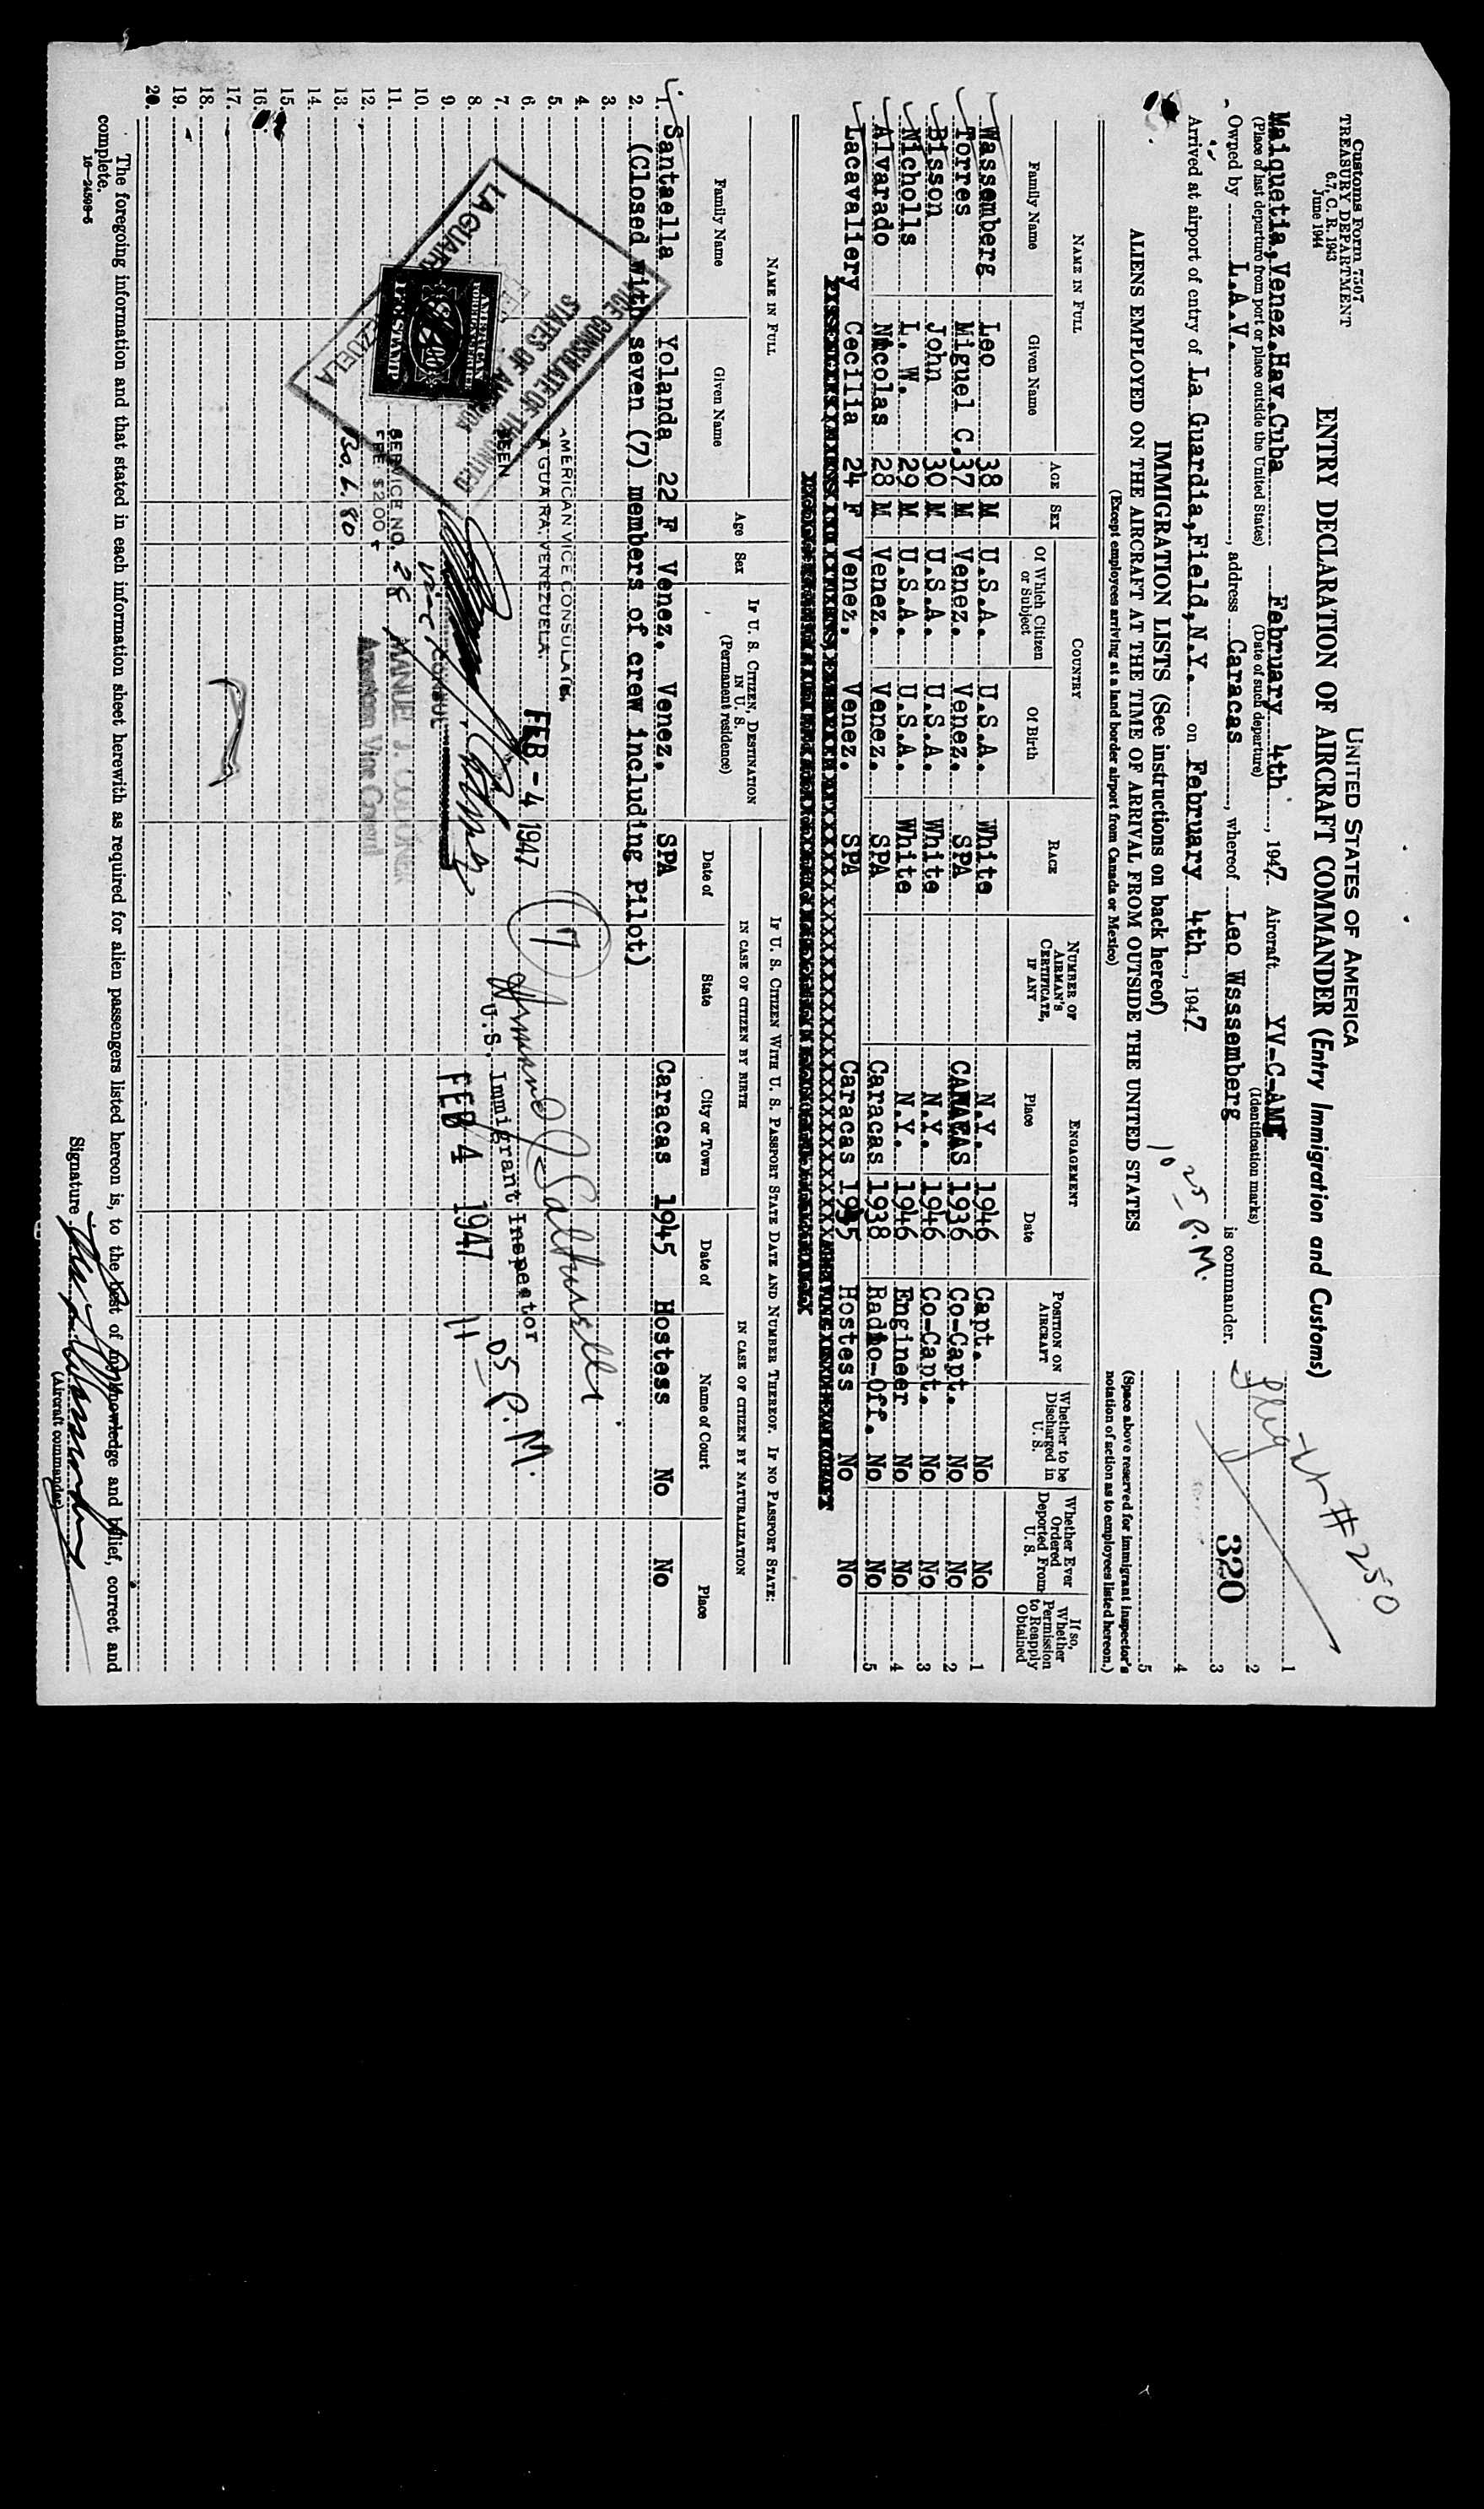 Customs Form 7507
TREASURY DEPARTMENT
6.7, C. R. 1943
June 1944
UNITED STATES OF AMERICA
ENTRY DECLARATION OF AIRCRAFT COMMANDER (Entry Immigration and Customs)
Flight # 250
Maiquetia, Venez. Hav. Cuba February 4th, 1947 Aircraft YV-C-AM
(Place of last departure from port or place outside the United States) (Date of such departure) (Identification marks)
Owned by L.A.V., address Caracas, whereof Leo Wsssemberg is commander.
Arrived at airport of entry of La Guardia, Field, N.Y. on February 4th, 1947
10 25 P.M.
1
2
3
320
4
5
IMMIGRATION LISTS (See instructions on back hereof)
ALIENS EMPLOYED ON THE AIRCRAFT AT THE TIME OF ARRIVAL FROM OUTSIDE THE UNITED STATES
(Except employees arriving at a land border airport from Canada or Mexico)
(Space above reserved for immigrant inspector's notation of action as to employees listed hereon.)
NAME IN FULL AGE SEX COUNTRY RACE NUMBER OF AIRMAN'S CERTIFICATE, IF ANY ENGAGEMENT POSITION ON AIRCRAFT Whether to be Discharged in U. S. Whether Ever Ordered Deported From U. S. If so, Whether Permission to Reapply Obtained
Family Name Given Name Of Which Citizen or Subject Of Birth Place Date
Wassemberg Leo 38 M U.S.A. U.S.A. White N.Y. 1946 Capt. No No 1
Torres Miguel C. 37 M Venez. Venez. SPA CARACAS 1936 Co-Capt. No No 2
Bisson John 30 M U.S.A. U.S.A. White N.Y. 1946 Co-Capt. No No 3
Nicholls L. W. 29 M U.S.A. U.S.A. White N.Y. 1946 Engineer No No 4
Alvarado Nicolas 28 M Venez. Venez. SPA Caracas 1938 Radio-Off. No No 5
Lacavaliery Cecilia 24 F Venez. Venez. SPA Caracas 1945 Hostess No No
NAME IN FULL Age Sex IF U. S. CITIZEN, DESTINATION IN U. S. (Permanent residence) IF U. S. CITIZEN WITH U. S. PASSPORT STATE DATE AND NUMBER THEREOF. IF NO PASSPORT STATE:
IN CASE OF CITIZEN BY BIRTH IN CASE OF CITIZEN BY NATURALIZATION
Family Name Given Name Date of State City or Town Date of Name of Court Place
1. Santaella Yolanda 22 F Venez. Venez. SPA Caracas 1945 Hostess No No
2. (Closed with seven (7) members of crew including Pilot)
3.
4.
5.
6.
7.
8.
9.
10.
11.
12.
13.
14.
15.
16.
17.
18.
19.
20.
AMERICAN VICE CONSULATE,
LA GUAIRA, VENEZUELA.
SEEN
FEB - 4 1947
VICE CONSULATE OF THE UNITED
STATES OF AMERICA
LA GUAIRA VENEZUELA
AMERICAN
FOREIGN SERVICE
FEE STAMP
VICE CONSUL
SERVICE NO. 28
FEE $2.00
American Vice Consul
(7)
U.S. Immigrant Inspector
FEB 4 1947
11 - 05 P.M.
The foregoing information and that stated in each information sheet herewith as required for alien passengers listed hereon is, to the best of my knowledge and belief, correct and
complete.
16—24598-5
Signature
(Aircraft commander)